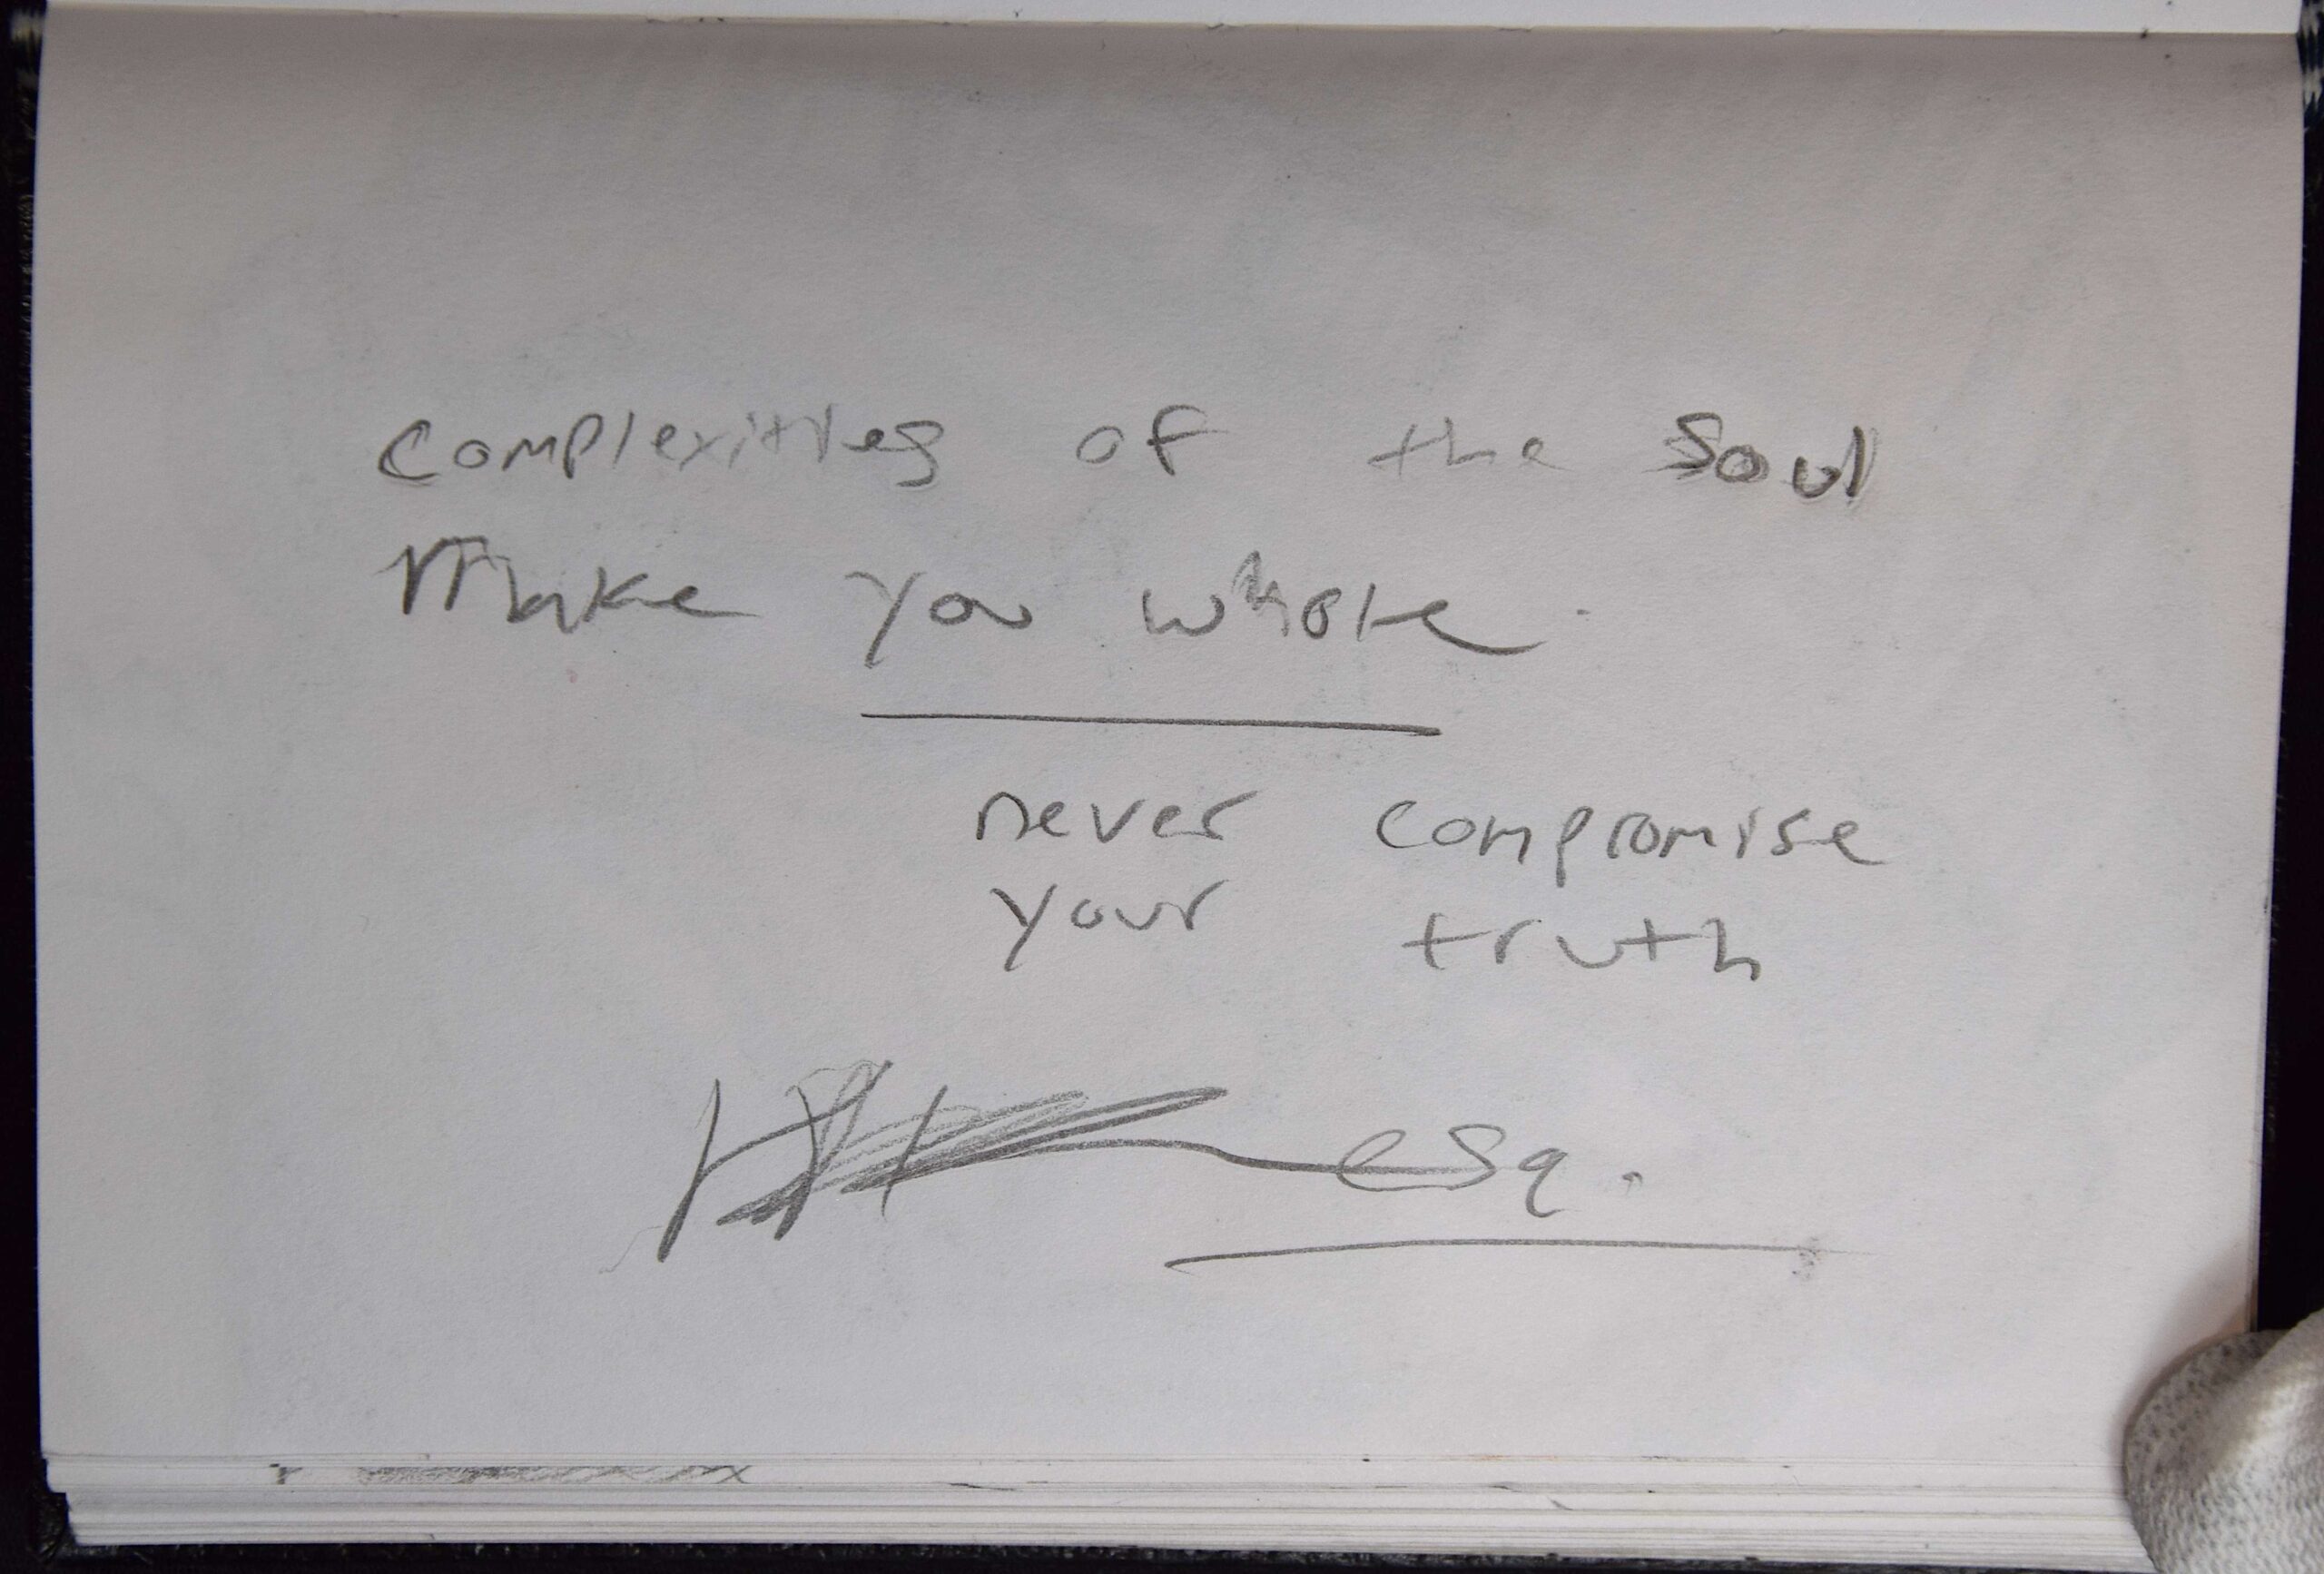 complexities of the soul
Make you whole.
never compromise
your truth
esq.